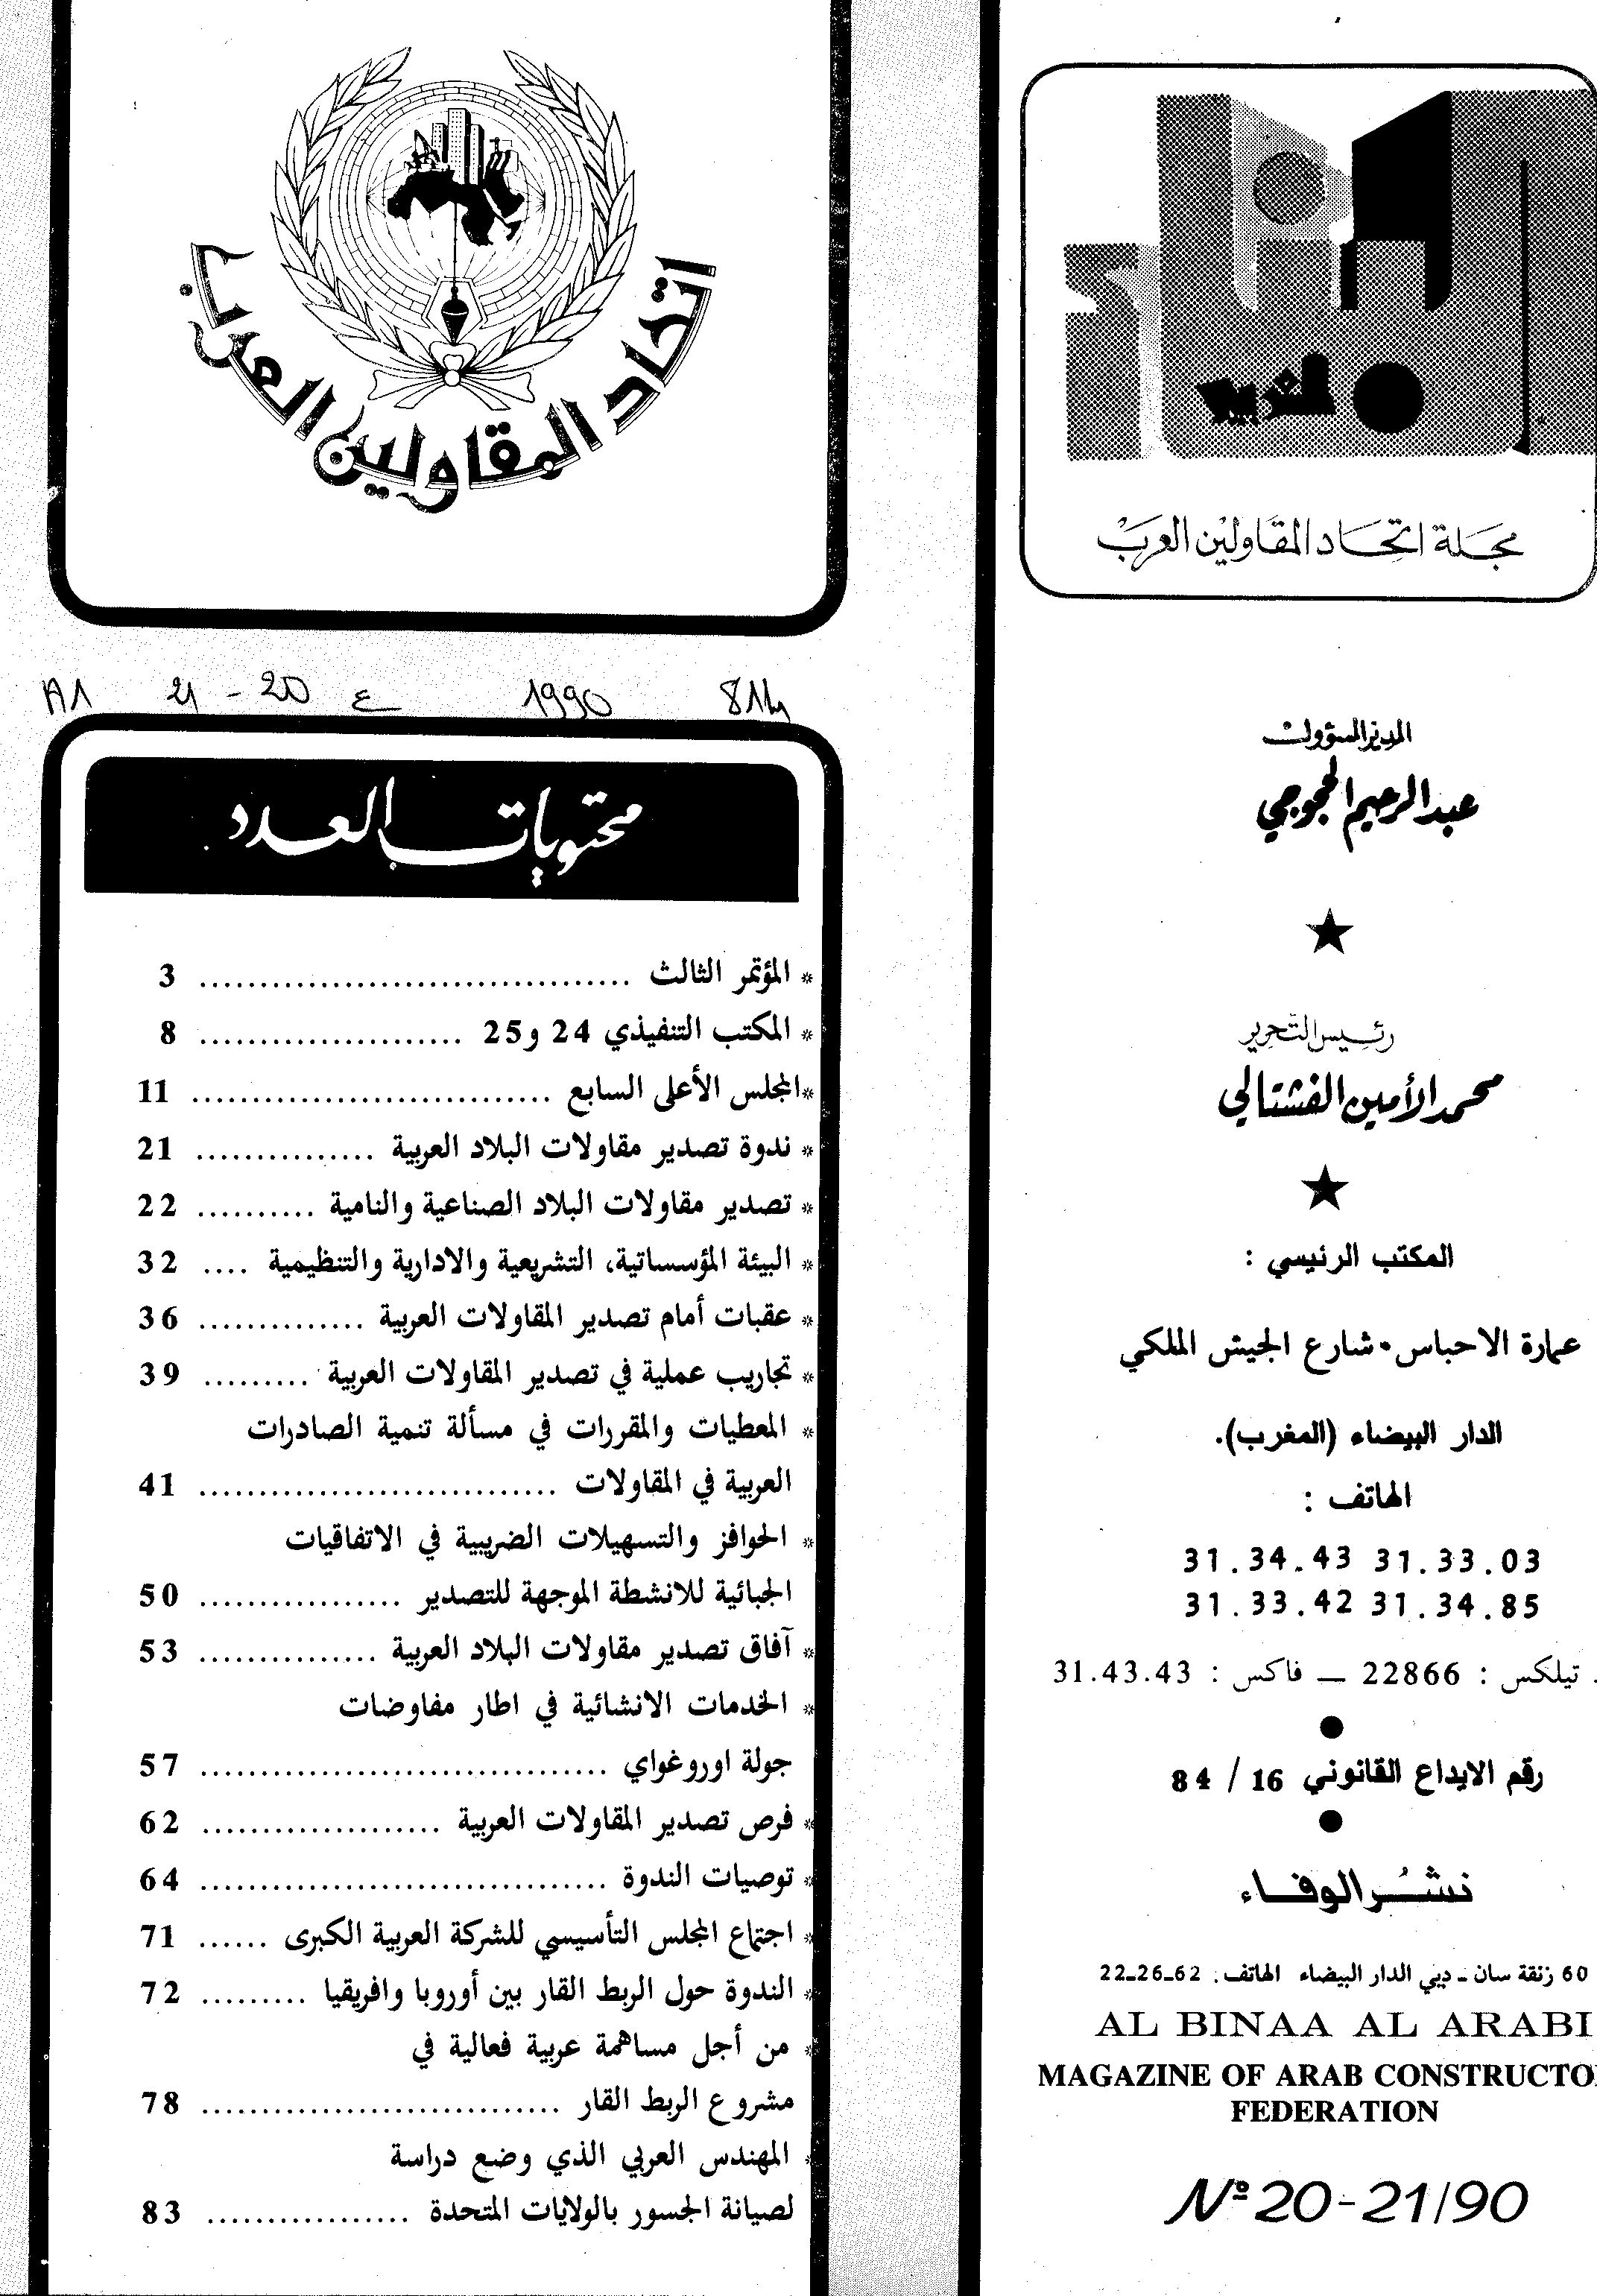 البناء
العربي
مجلة اتحاد المقاولين العرب
المدير المسؤول
عبد الرحيم الحجوجي
رئيس التحرير
محمد الأمين الفشتالي
المكتب الرئيسي :
عمارة الاحباس • شارع الجيش الملكي
الدار البيضاء (المغرب).
الهاتف :
31.34.43 31.33.03
31.33.42 31.34.85
تيلكس : 22866 — فاكس : 31.43.43
رقم الايداع القانوني 16 / 84
نشر الوفاء
60 زنقة سان ـ ديي الدار البيضاء الهاتف: 62ـ26ـ22
AL BINAA AL ARABI
MAGAZINE OF ARAB CONSTRUCTO
FEDERATION
Nº 20-21/90
اتحاد المقاولين العرب
A1 21 - 20 ع 1990
محتويات العدد
* المؤتمر الثالث ..................................... 3
* المكتب التنفيذي 24 و25 ...................... 8
*المجلس الأعلى السابع .............................. 11
* ندوة تصدير مقاولات البلاد العربية ............... 21
* تصدير مقاولات البلاد الصناعية والنامية .......... 22
* البيئة المؤسساتية، التشريعية والادارية والتنظيمية .... 32
* عقبات أمام تصدير المقاولات العربية .............. 36
* تجاريب عملية في تصدير المقاولات العربية ......... 39
* المعطيات والمقررات في مسألة تنمية الصادرات
العربية في المقاولات .............................. 41
* الحوافز والتسهيلات الضريبية في الاتفاقيات
الجبائية للانشطة الموجهة للتصدير ................. 50
* آفاق تصدير مقاولات البلاد العربية ............... 53
* الخدمات الانشائية في اطار مفاوضات
جولة اوروغواي .................................. 57
* فرص تصدير المقاولات العربية .................... 62
* توصيات الندوة .................................. 64
* اجتماع المجلس التأسيسي للشركة العربية الكبرى ...... 71
* الندوة حول الربط القار بين أوروبا وافريقيا ......... 72
* من أجل مساهمة عربية فعالية في
مشروع الربط القار .............................. 78
* المهندس العربي الذي وضع دراسة
لصيانة الجسور بالولايات المتحدة ................. 83